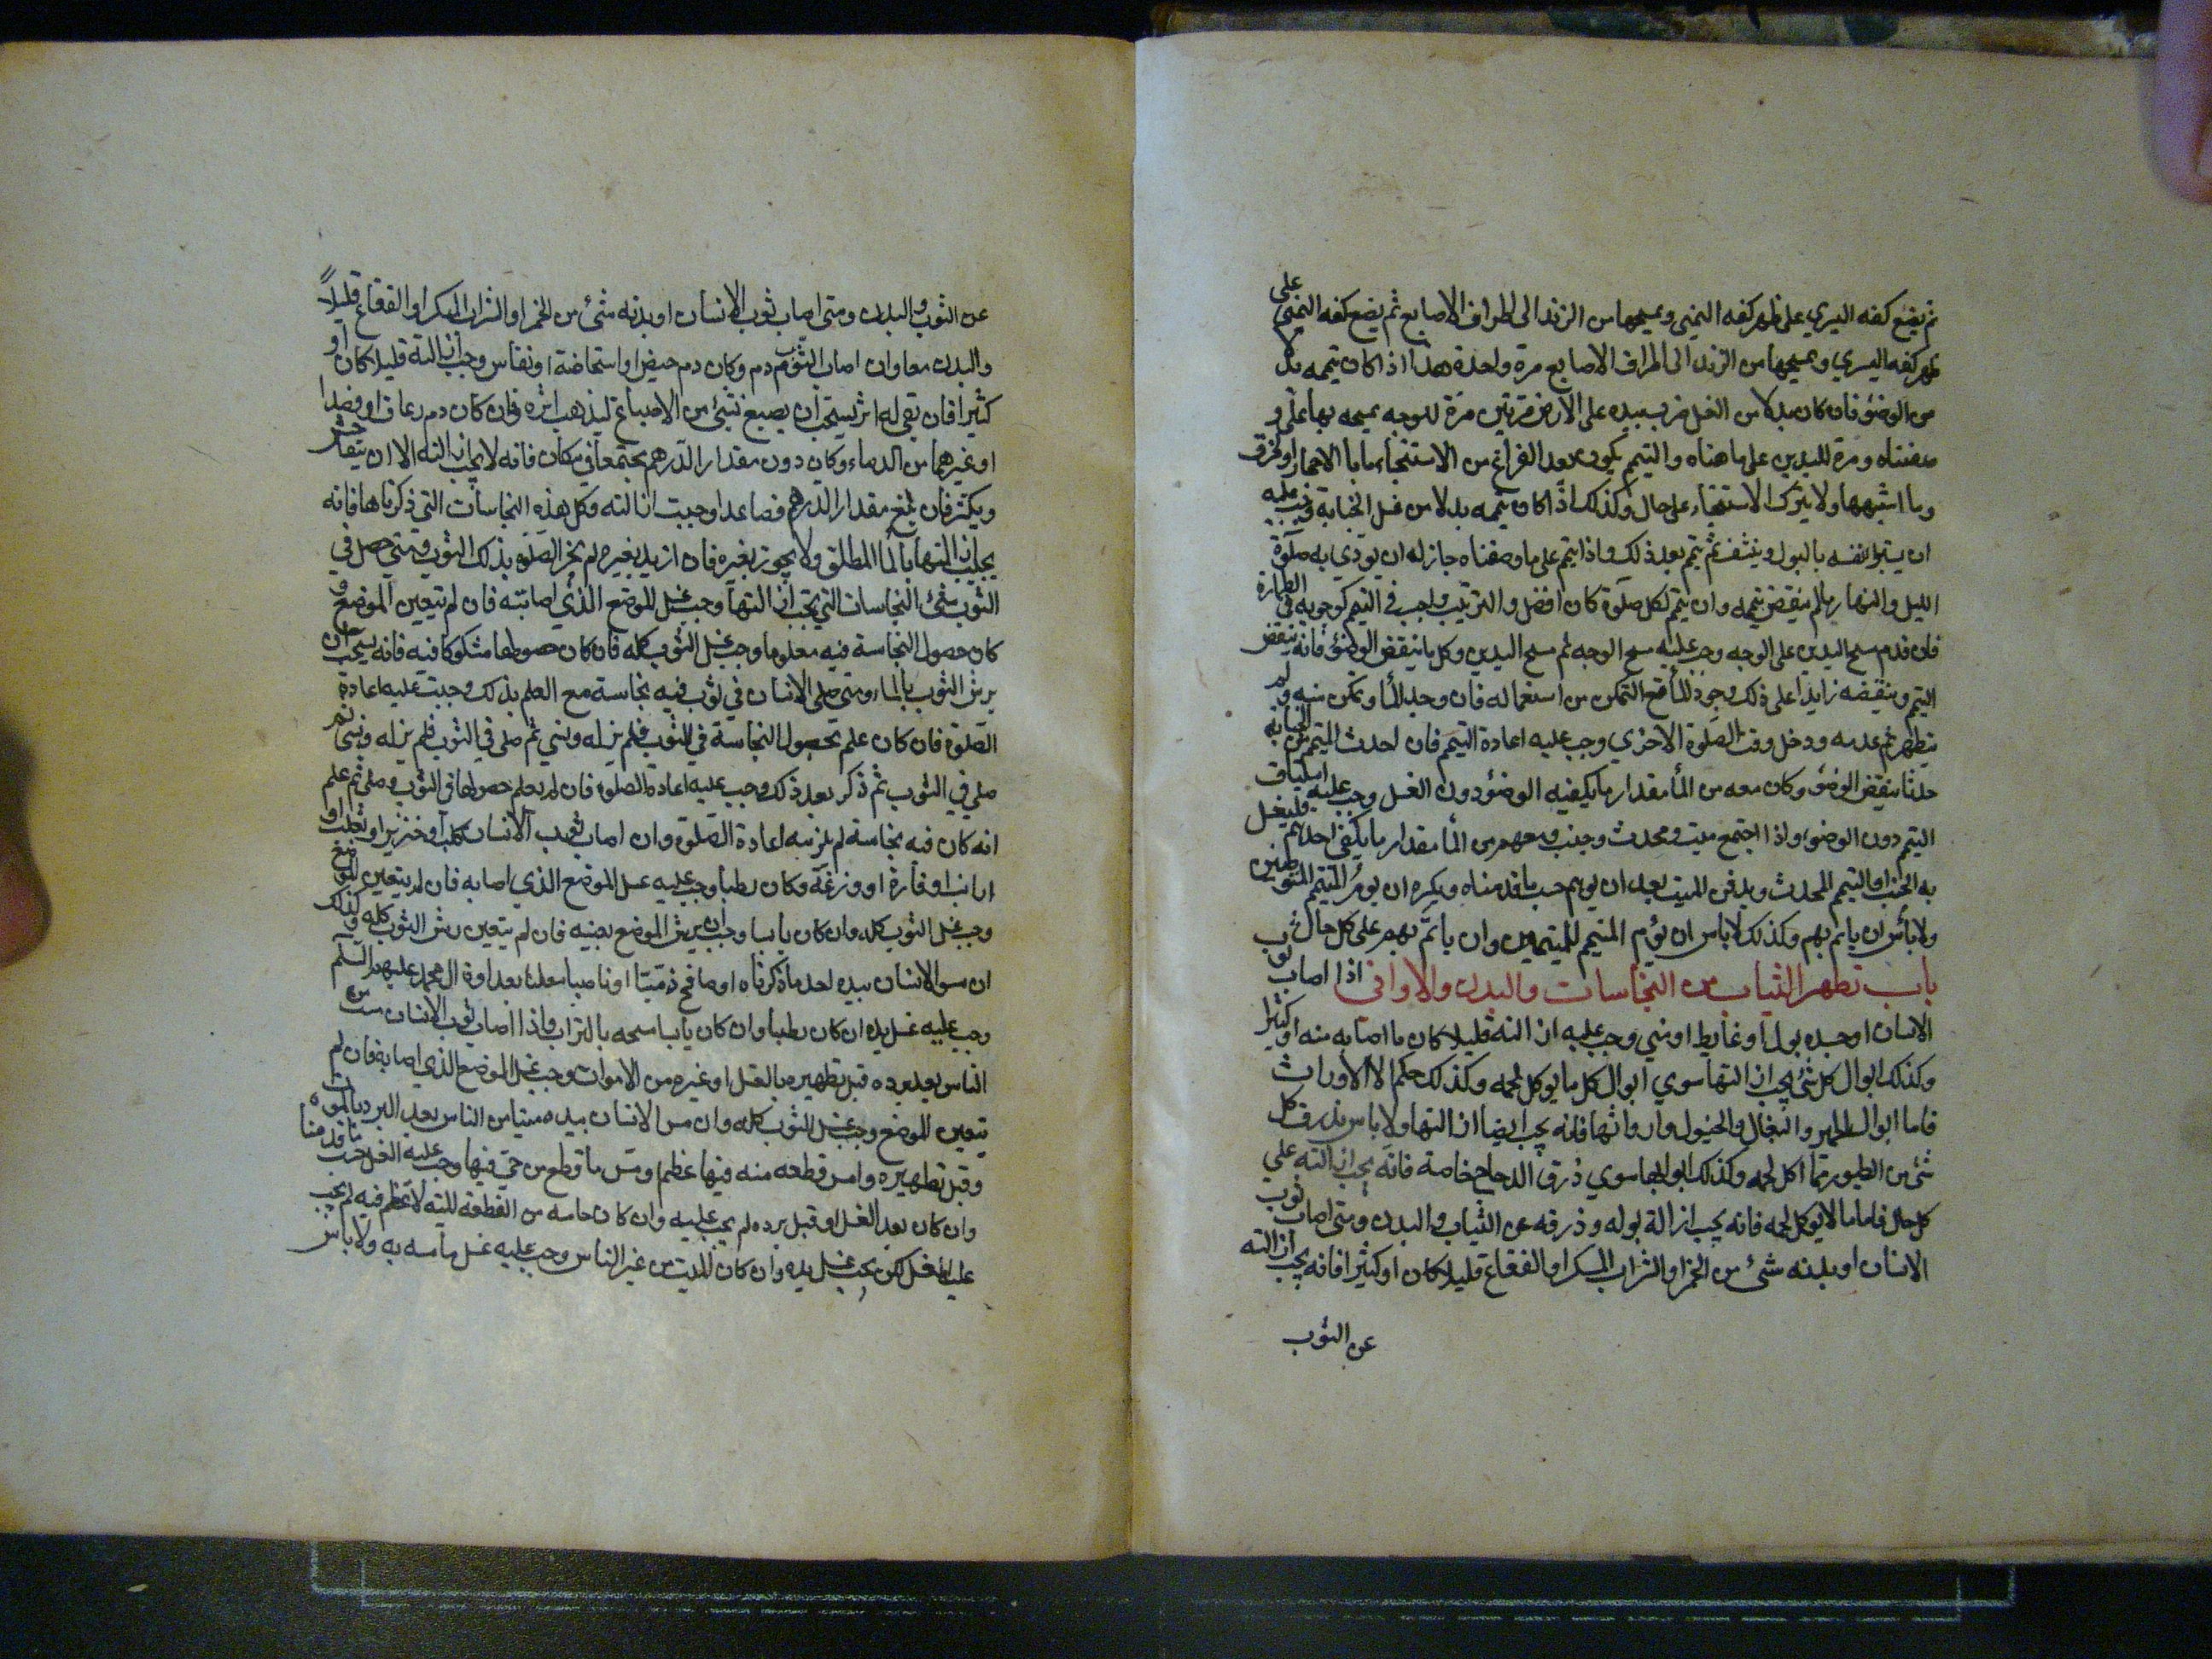 ثم يضع كفه اليسري على ظهر كفه اليمني ويمسحها من الزند الى اطراف الاصابع ثم يضع كفه اليمني على
ظهر كفه اليسري ويمسحها من الزند الى اطراف الاصابع مرة واحدة هذا اذا كان تيممه بدلا
من الوضؤ فان كان بدلا من الغسل ضرب بيده على الارض مرتين مرة للوجه يمسحه بها على
صفناه ومرة لليدين على ما صفناه والتيمم يكون بعد الفراغ من الاستنجاء بالاحجار او الخرق
وما اشبهها ولا يترك الاستنجاء على حال وكذلك اذا كان تيممه بدلا من غسل الجنابة فيجب عليه
ان يستبرئ نفسه بالبول وينشف ثم يتيمم بعد ذلك واذا تيمم على ما وصفناه جاز له ان يؤدي به صلوة
الليل والنهار ما لم ينقض تيممه وان تيمم لكل صلوة كان افضل والترتيب واجب في التيمم كوجوبه في الطهارة
فان قدم مسح اليدين على الوجه وجب عليه مسح الوجه ثم مسح اليدين وكل ما ينقض الوضؤ فانه ينقض
التيمم وينقضه زايدا على ذلك وجود الماء مع التمكن من استعماله فان وجد الماء وتمكن منه ولم
يتطهر ثم عدمه ودخل وقت الصلوة الاخري وجب عليه اعادة التيمم فان احدث المتيمم من الجنابة
حدثا ينقض الوضؤ وكان معه من الماء مقدار ما يكفيه الوضؤ دون الغسل وجب عليه استيناف
التيمم دون الوضؤ واذا اجتمع ميت ومحدث وجنب ومعهم من الماء مقدار ما يكفي احدهم فليغسل
به الجنب وليتيمم المحدث ويدفن الميت بعد ان يؤمم حسب ما قدمناه ويكره ان يؤم المتيمم المتوضين
ولا بأس ان ياتم بهم وكذلك لا باس ان يؤم المتيمم للمتيممين وان ياتم بهم على كل حال
باب تطهر الثياب من النجاسات والبدن والاواني اذا اصاب ثوب
الانسان او جسده بول او غايط او مني وجب عليه ازالته قليلا كان ما اصابه منه او كثيرا
وكذلك ابوال كل شئ يجب ازالتها سوي ابوال كل ما يوكل لحمه وكذلك حكم الارواث
فاما ابوال الحمير والبغال والخيول وارواثها فانه يجب ايضا ازالتها ولا باس بذرق كل
شئ من الطيور مما اكل لحمه وكذلك ابوالها سوي ذرق الدجاج خاصة فانه يجب ازالته علي
كل حال فاما ما لا يوكل لحمه فانه يجب ازالة بوله وذرقه عن الثياب والبدن ومتى اصاب ثوب
الانسان او بدنه شئ من الخمر او الشراب المسكر او الفقاع قليلا كان او كثيرا فانه يجب ازالته
عن الثوب
عن الثوب والبدن ومتى اصاب ثوب الانسان او بدنه شئ من الخمر او الشراب المسكر او الفقاع قليلاً
والبدن معا وان اصاب الثوب دم وكان دم حيض او استحاضة او نفاس وجب ازالته قليلا كان او
كثيرا فان بقي له اثر يستحب ان يصبغ بشئ من الاصباغ ليذهب اثره وان كان دم رعاف او فصد
او غيرهما من الدماء وكان دون مقدار الدرهم مجتمعا في مكان فانه لا يجب ازالته الا ان يتفاحش
ويكثر فان بلغ مقدار الدرهم فصاعدا وجبت ازالته وكل هذه النجاسات التي ذكرناها فانه
يجب ازالتها بالماء المطلق ولا يجوز بغيره فان ازيل بغيره لم يجز الصلوة بذلك الثوب ومتي حصل في
الثوب شئ من النجاسات التي يجب ازالتها وجب غسل الموضع الذي اصابته فان لم يتعين الموضع و
كان حصول النجاسة فيه معلوما وجب غسل الثوب كله فان كان حصولها مشكوكا فيه فانه يستحب ان
يرش الثوب بالماء ومتى صلى الانسان في ثوب فيه نجاسة مع العلم بذلك وجبت عليه اعادة
الصلوة فان كان علم بحصول النجاسة في الثوب فلم يزله ونسي ثم صلي في الثوب فلم يزله ونسى ثم
صلي في الثوب ثم ذكر بعد ذلك وجب عليه اعادة الصلوة فان لم يعلم حصولها في الثوب وصلى ثم علم
انه كان فيه نجاسة لم يلزمه اعادة الصلوة وان اصاب ثوب الانسان كلب او خنزير او ثعلب او
ارنب او فأرة او وزغة وكان رطبا وجب عليه غسل الموضع الذي اصابه فان لم يتعين الموضع
وجب غسل الثوب كله وان كان يابسا وجب ان يرش الموضع بعينه فان لم يتعين رش الثوب كله وكذلك
ان مس الانسان بيده احد ما ذكرناه او صافح ذميّا او ناصبا معلنا بعداوة ال محمد عليهم السلم
وجب عليه غسل يده ان كان رطبا وان كان يابسا مسحه بالتراب واذا اصاب ثوب الانسان ميت من
الناس بعد برده قبل تطهيره بالغسل او غيره من الاموات وجب غسل الموضع الذي اصابه فان لم
يتعين الموضع وجب غسل الثوب كله وان مس الانسان بيده ميتا من الناس بعد البرد بالموت
وقبل تطهيره وامس قطعه منه فيها عظم او مس ما قطع من حي وفيها وجب عليه الغسل حسب ما قدمناه
وان كان بعد الغسل او قبل برده لم يجب عليه وان كان ما مسه من القطعة الميتة لا عظم فيه لم يجب
عليه الغسل لكن يجب غسل يده وان كان الميت من غير الناس وجب عليه غسل ما مسه به ولا باس